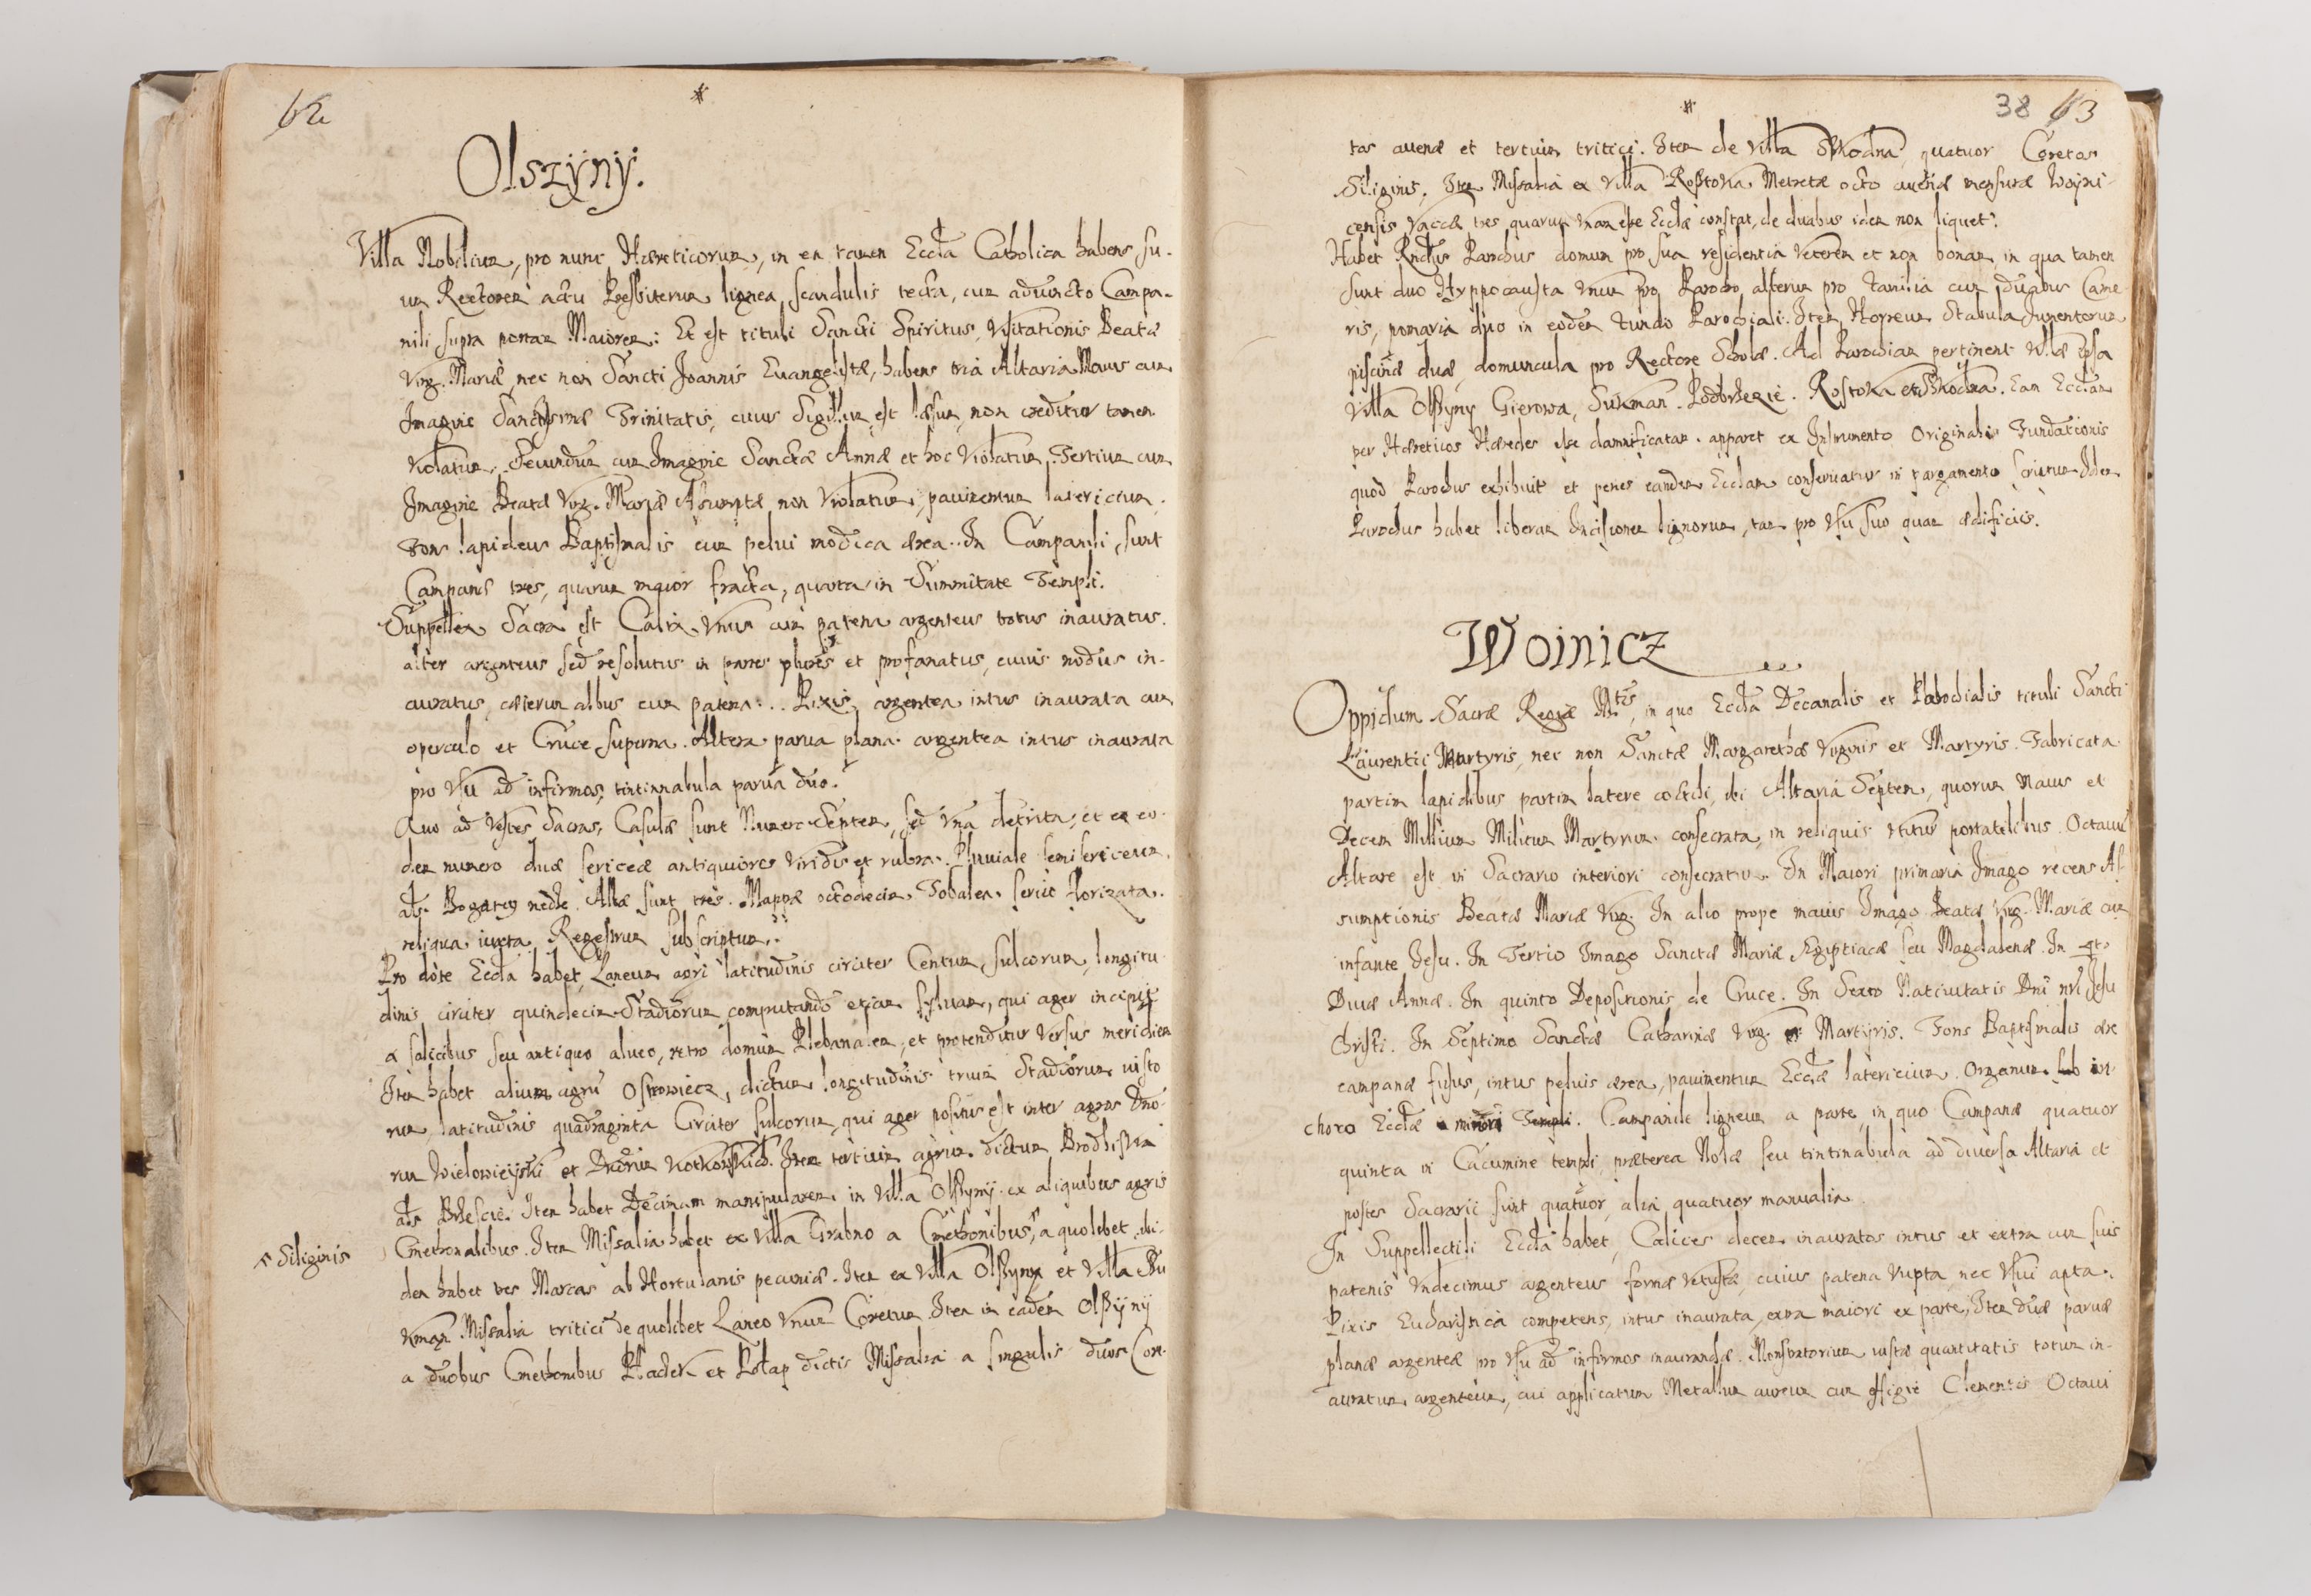 62
Olszÿnÿ.
Villa Nobilium, pro nunc Hæreticorum, in ea tamen Eccła Catholica habens su-
um Rectorem actu Presbiterum lignea, scandulis tecta, cum adiuncto Campa-
nili supra portam Maiorem: Et est tituli Sancti Spiritus, Visitationis Beatæ
Virg. Mariæ nec non Sancti Joannis Euangelistæ, habens tria Altaria Maius cum
Imagine Sanctissimæ Trinitatis, cuius Sigillum est læsum, non creditur tamen
violatum. Secundum cum Imagine Sanctæ Annæ et hoc Violatum. Tertium cum
Imagine Beatæ Virg. Mariæ Assumptæ non Violatum, pauimentum latericium.
Fons lapideus Baptismalis cum pelui modica ærea. In Campanili, sunt
Campanæ tres, quarum maior fracta, quarta in Summitate Templi.
Suppellex Sacra est Calix Vnus cum patena argenteus totus inauratus.
alter argenteus sed resolutus in partes plures et profanatus, cuius nodus in-
auratus, cæterum albus cum patena. Pixis argentea intus inaurata cum
operculo et Cruce superna. Altera parua plana argentea intus inaurata
pro Vsu ad infirmos, tintinnabula parua duo.
Quo ad Vestes Sacras, Casulæ sunt Numero Septem, sed Vna detrita, et ex eo-
dem numero duæ sericeæ antiquiores viridis et rubra. Pluuiale semisericeum,
Albæ sunt tres. Mappæ octodecim Tobalea serico florizata.
reliqua iuxta Regestrum subscriptum.
Pro dote Eccła habet Laneum agri latitudinis circiter Centum sulcorum, longitu-
dinis circiter quindecim Stadiorum computando etiam syluam, qui ager incipit
a salicibus seu antiquo alueo, retro domum Plebanalem, et protenditur Versus meridiem
Item habet alium agrũ Ostrowiecz, dictum longitudinis trium Stadiorum iusto
rum, latitudinis quadraginta Circiter sulcorum, qui ager positus est inter agros Dno-
rum Wielowieÿski et Item tertium agrum dictum
Item habet Decimam manipularem in Villa Olssÿnÿ ex aliquibus agris
Cmethonalibus. Item Missalia habet ex Villa Grabno a Cmethonibus, a quolibet, ibi-
Siliginis
dem habet tres Marcas ab Hortulanis pecuniæ. Item ex Villa Olssÿnÿ et Villa Su
kman Missalia tritici de quolibet Laneo Vnum Coretum Item in eadem Olssÿnÿ
a duobus Cmethonibus et dictis Missalia a singulis duos Core-
38 63
tos auenæ et tertium tritici. Item de Villa quatuor Coretos
Siliginis, Item Missalia ex Villa Rostoka Metretæ octo auenæ mensuræ Woÿni-
censis Vaccæ tres, quarum Vnam esse Eccłæ constat, de duabus idem non liquet.
Habet Rndus Parochus domum pro sua residentia Veterem et non bonam in qua tamen
sunt duo Hyppocausta Vnum pro Parocho, alterum pro familia cum duabus Came-
ris, pomaria duo in eodem fundo Parochiali. Item Horreum Stabula Jumentorum
piscinæ duæ, domuncula pro Rectore Scholæ. Ad Parochiam pertinent Villæ ipsa
Villa Olssÿny Gierowa, Sukman. Rostoka Eam Eccłam
per Hæreticos Hæredes esse damnificatam. apparet ex Instrumento Originalis Fundationis
quod Parochus exhibuit et penes eandem Ecclam conseruatur in pargameno scriptum Idem
Parochus habet liberam Incisionem lignorum, tam pro Vsu suo quam ædificiis.
Woinicz
Oppidum Sacræ Regiæ Mtis, in quo Eccła Decanalis et Parochialis tituli Sancti
Laurentii Martyris, nec non Sanctæ Margarethæ Virginis et Martyris. Fabricata
partim lapidibus partim latere coctili, ibi Altaria Septem, quorum Maius et
Decem Millium Militum Martyrum consecrata, in reliquis vtitur portatilibus. Octauũ
Altare est in Sacrario interiori consecratum. In Maiori primaria Imago recens As-
sumptionis Beatæ Mariæ Virg. In alio prope maius Imago Beatæ Virg. Mariæ cum
infante Jesu. In Tertio Imago Sanctæ Mariæ Ægiptiacæ seu Magdalenæ. In 4to
Diuæ Annæ. In quinto Depositionis de Cruce. In Sexto Natiuitatis Dni nri Jesu
Christi. In Septimo Sanctæ Catharinæ Virg. et Martÿris. Fons Baptismalis ære
campanæ fusus, intus peluis ærea, pauimentum Eccłæ latericium. Organum in
choro Eccłæ minori Templi. Campanile ligneum a parte, in quo Campanæ quatuor
quinta in Cacumine templi, præterea Nolæ seu tintinabula ad diuersa Altaria et
postes Sacrarii sunt quatuor, alia quatuor manualia
In Suppellectili Eccła habet, Calices decem inauratos intus et extra cum suis
patenis Vndecimus argenteus formæ vetustæ, cuius patena rupta, nec Vsui apta.
Pixis Eucharistica competens, intus inaurata, extra maiori ex parte, Item duæ paruæ
planæ argenteæ pro Vsu ad infirmos inaurandæ. Monstratorium iustæ quantitatis totum in-
auratum argenteum, cui applicatum Metallum aureum cum effigie Clementis Octaui